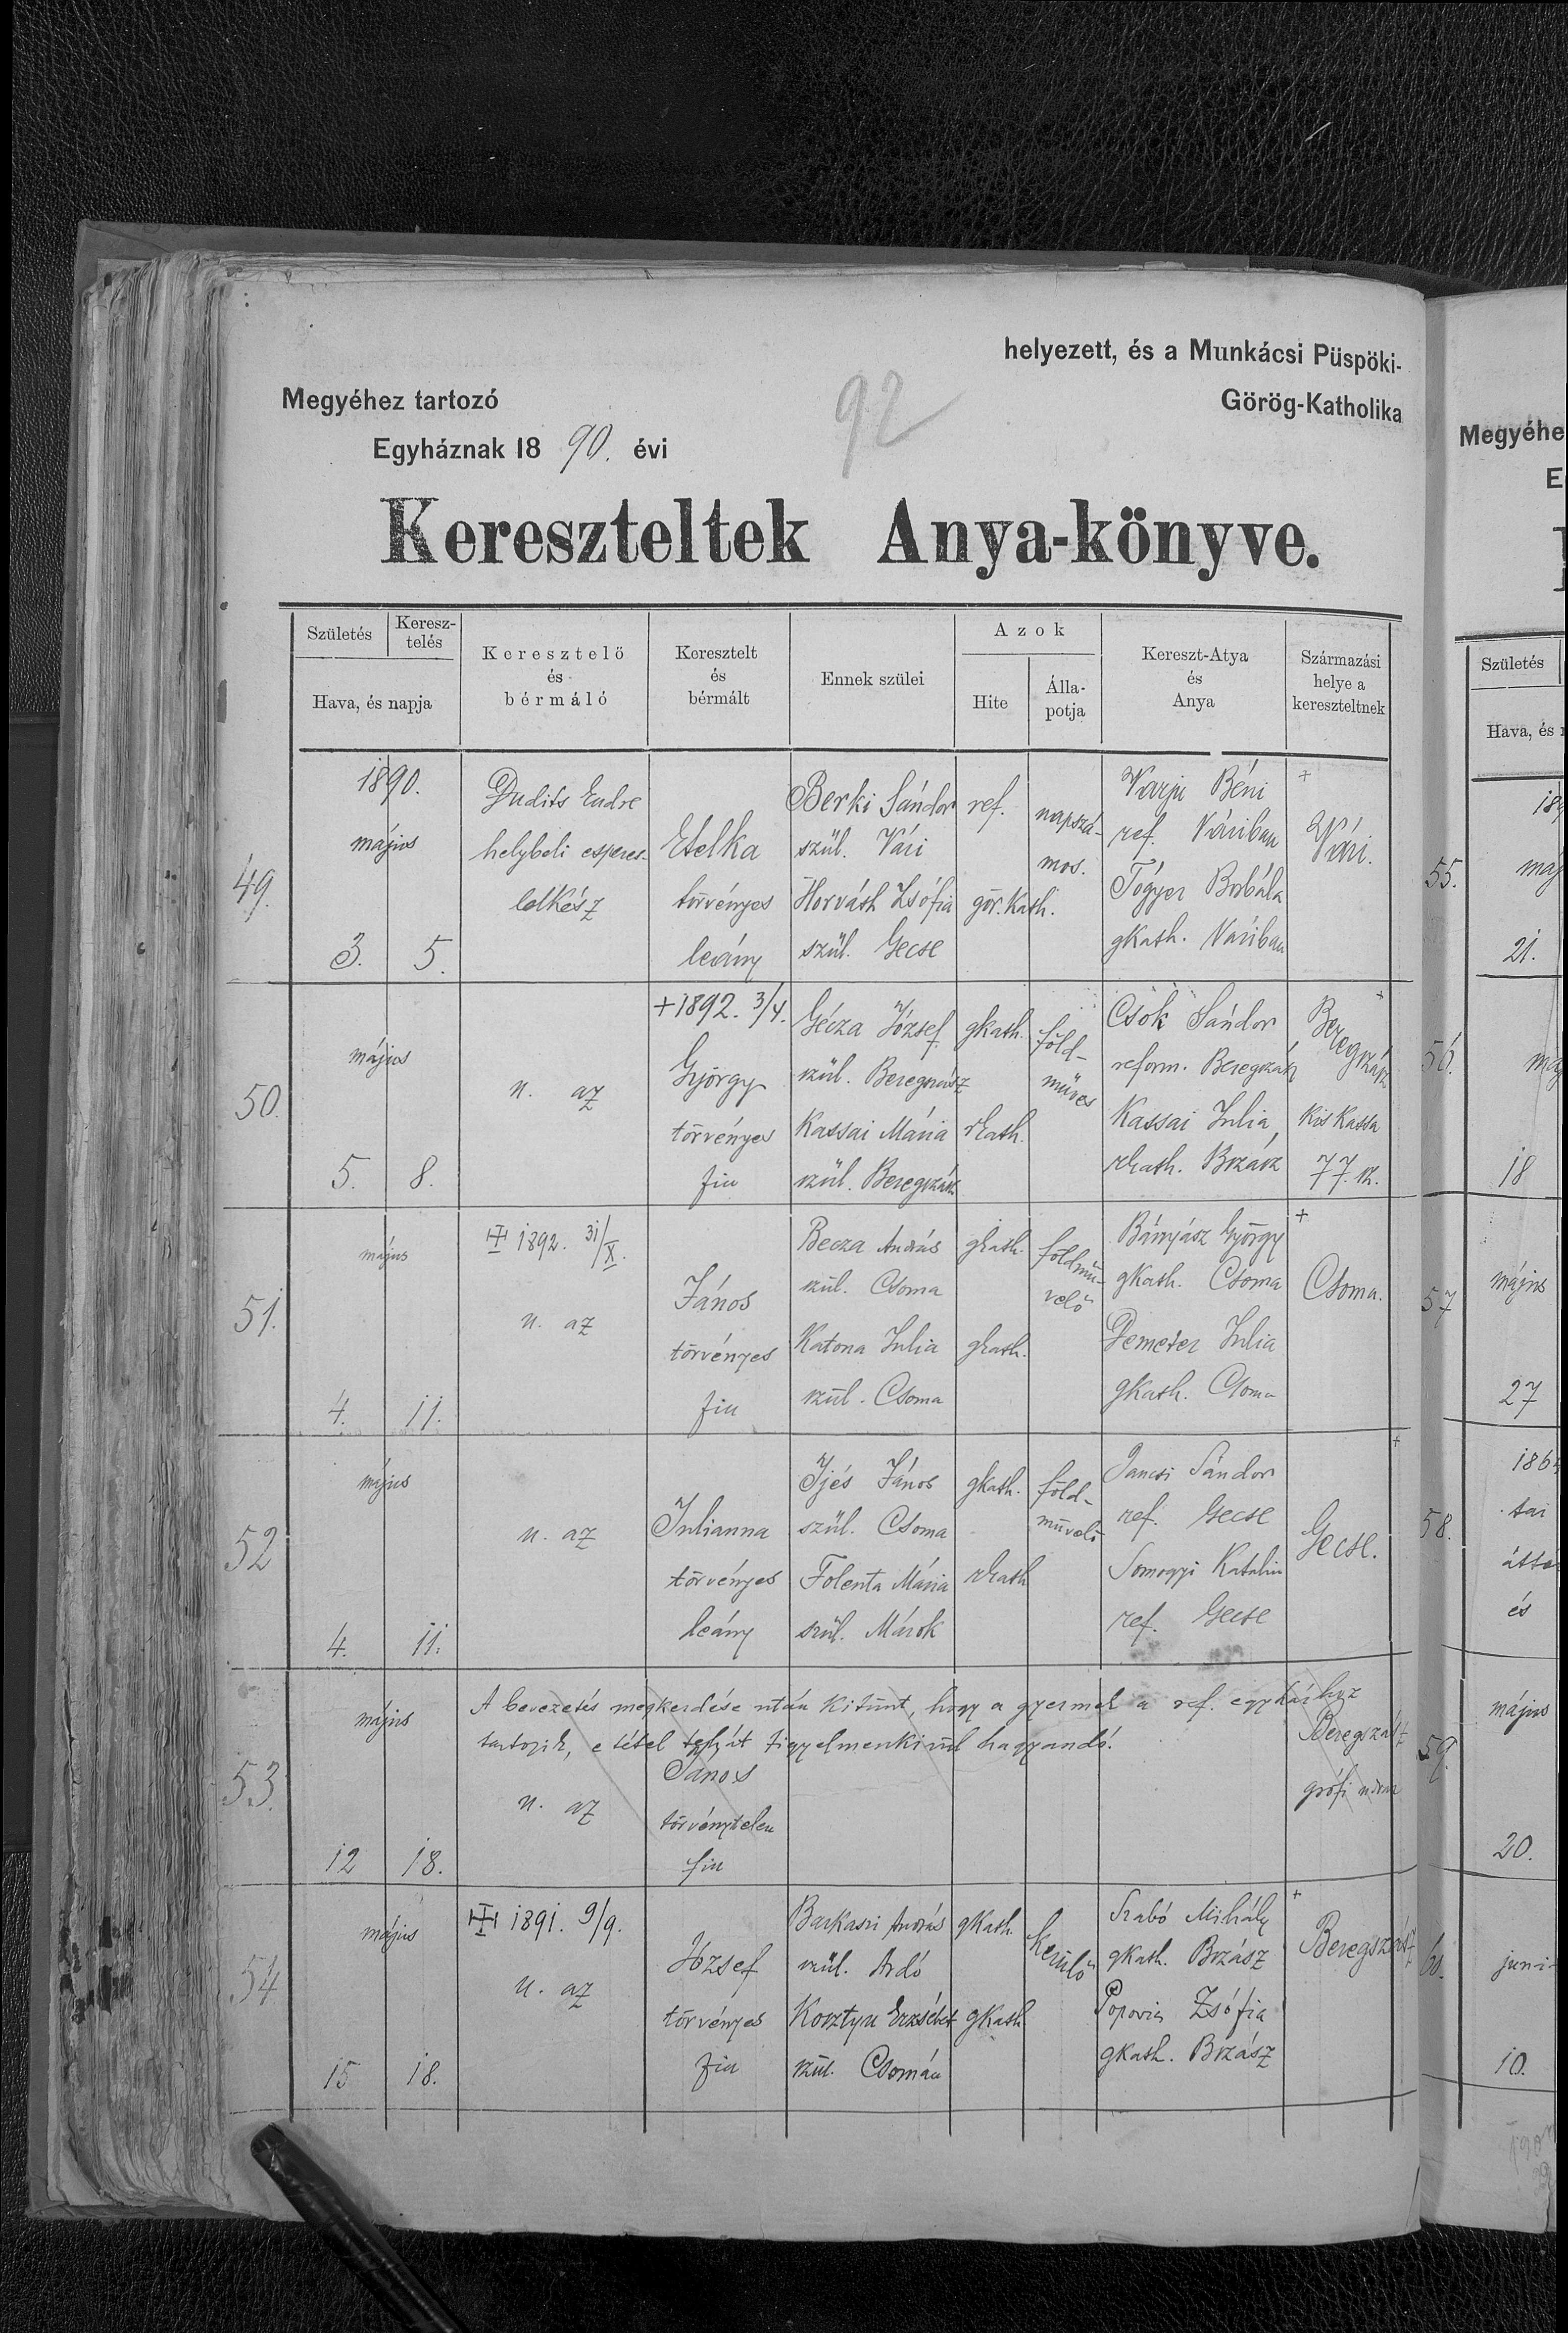 helyezett, és a Munkácsi Püspöki-
Megyéhez tartozó
92
Görög-Katholika
Egyháznak 1890. évi
Kereszteltek Anya-könyve.
Születés
Keresz-
telés
Hava, és napja
Keresztelő
és
bérmáló
Keresztelt
és
bérmált
Ennek szülei
Azok
Hite
Álla-
potja
Kereszt-Atya
és
Anya
Származási
helye a
kereszteltnek
49.
1890.
május
3. 5.
Dudits Endre
helybeli esperes-
lelkész
Etelka
törvényes
leány
Berki Sándor
szül. Vári
Horváth Zsófia
szül. Gecse
ref.
gör. Kath.
napszá-
mos.
Varju Béni
ref. Váriban
Tógyer Borbála
gkath. Váriban
+
Vári.
50.
május
5. 8.
u. az
+ 1892. 3/4.
György
törvényes
fiu
Gécza József
szül. Beregszász
Kassai Mária
szül. Beregszász
gkath.
rkath.
föld-
műves
Csók Sándor
reform. Beregszász
Kassai Julia
rkath. Bszász
+
Beregszász
Kis Kassa
77. sz.
51.
május
4. 11.
1892. 31/X.
u. az
János
törvényes
fiu
Becza András
szül. Csoma
Katona Julia
szül. Csoma
gkath.
gkath.
földmü-
velő
Bányász György
gkath. Csoma
Demeter Julia
gkath. Csoma
+
Csoma.
52
május
4. 11.
u. az
Julianna
törvényes
leány
Ijjés János
szül. Csoma
Folenta Mária
szül. Márok
gkath.
rkath
föld-
művelő
Jancsi Sándor
ref. Gecse
Somogyi Katalin
ref. Gecse
+
Gecse.
53.
május
12 18.
A bevezetés megkezdése után kitünt, hogy a gyermek a ref. egyházhoz
tartozik, e tétel tehát figyelmenkivül hagyandó.
u. az
János
törvénytelen
fiu
Beregszász
grófi udvar
54
május
15 18.
1891. 9/9.
u. az
József
törvényes
fiu
Barkaszi András
szül. Ardó
Kosztyu Erzsébet
szül. Csomán
gkath.
gkath
kerülő
Szabó Mihály
gkath. Bszász
Popovics Zsófia
gkath. Bszász
+
Beregszász
Megyéhe
E
Születés
Hava, és
55.
189
máj
21.
56.
máj
18
57
május
27
58.
186
tai
átta
és
59.
május
20.
60.
juni
10.